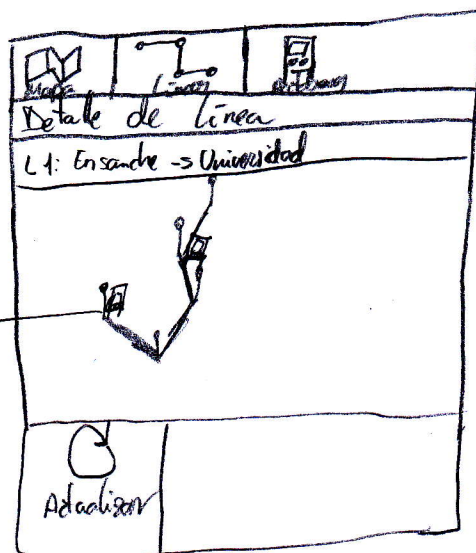 Mapa Líneas
Detalle de línea
L1: Ensanche -> Universidad
Actualizar